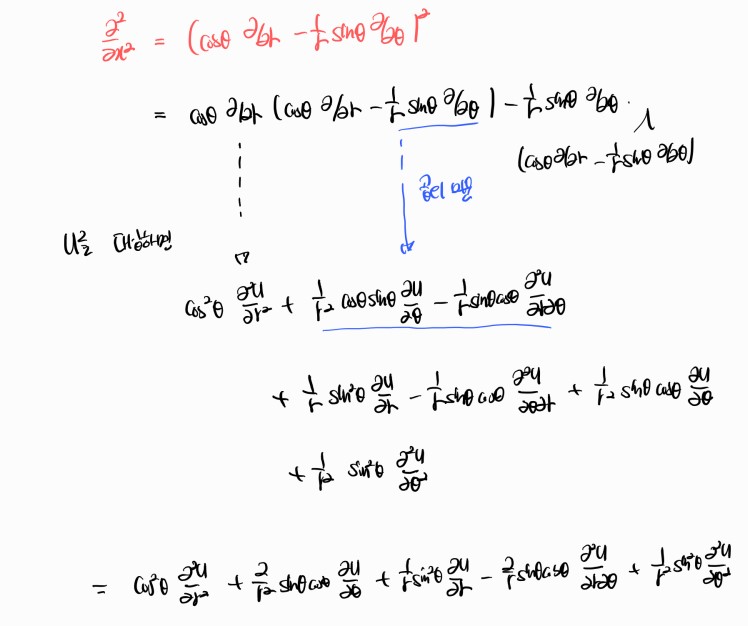 ∂²/∂x² = (cosθ ∂/∂r − 1/r sinθ ∂/∂θ)²
= cosθ ∂/∂r (cosθ ∂/∂r − 1/r sinθ ∂/∂θ) − 1/r sinθ ∂/∂θ ·
(cosθ ∂/∂r − 1/r sinθ ∂/∂θ)
곱의 미분
U로 대응하면
cos²θ ∂²u/∂r² + 1/r² cosθ sinθ ∂u/∂θ − 1/r sinθ cosθ ∂²u/∂r∂θ
+ 1/r sin²θ ∂u/∂r − 1/r sinθ cosθ ∂²u/∂θ∂r + 1/r² sinθ cosθ ∂u/∂θ
+ 1/r² sin²θ ∂²u/∂θ²
= cos²θ ∂²u/∂r² + 2/r² sinθ cosθ ∂u/∂θ + 1/r sin²θ ∂u/∂r − 2/r sinθ cosθ ∂²u/∂r∂θ + 1/r² sin²θ ∂²u/∂θ²